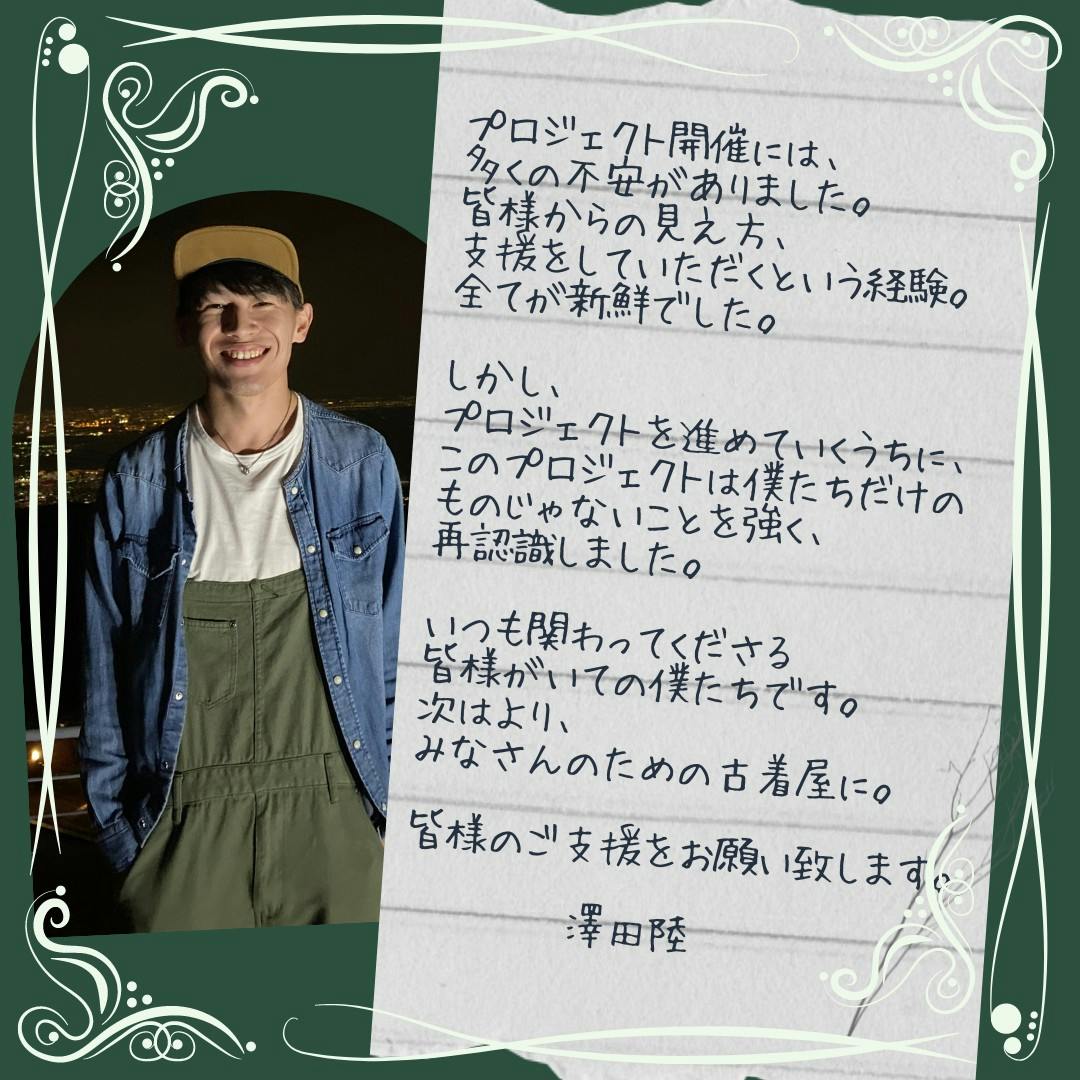 プロジェクト開催には、
多くの不安がありました。
皆様からの見え方、
支援をしていただくという経験。
全てが新鮮でした。
しかし、
プロジェクトを進めていくうちに、
このプロジェクトは僕たちだけの
ものじゃないことを強く、
再認識しました。
いつも関わってくださる
皆様がいての僕たちです。
次はより、
みなさんのための古着屋に。
皆様のご支援をお願い致します。
澤田陸